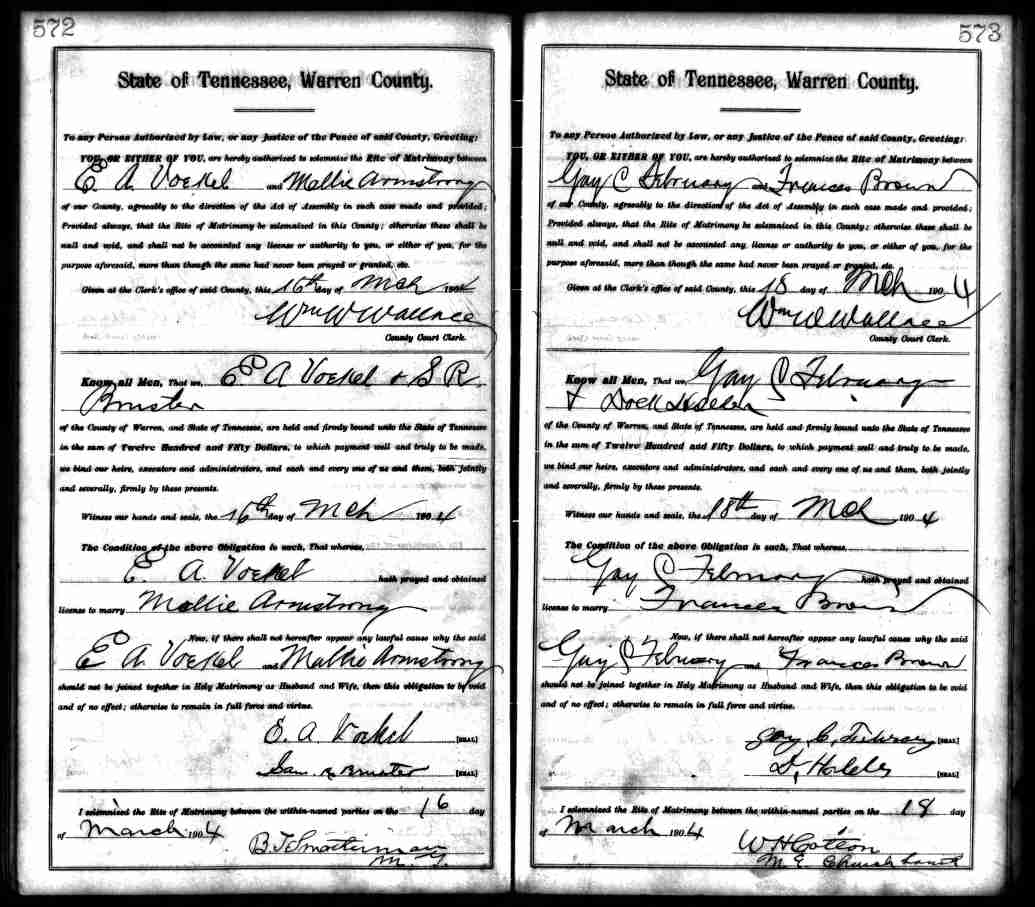 572
State of Tennessee, Warren County.
To any Person Authorized by Law, or any Justice of the Peace of said County, Greeting:
YOU, OR EITHER OF YOU, are hereby authorized to solemnize the Rite of Matrimony between
E A Voekel and Mollie Armstrong
of our County, agreeably to the direction of the Act of Assembly in such case made and provided;
Provided always, that the Rite of Matrimony be solemnized in this County; otherwise these shall be
null and void, and shall not be accounted any license or authority to you, or either of you, for the
purpose aforesaid, more than though the same had never been prayed or granted, etc.
Given at the Clerk's office of said County, this 16th day of Mch 1904
Wm W Wallace
County Court Clerk.
Know all Men, That we, E A Voekel & S R.
Bruster
of the County of Warren, and State of Tennessee, are held and firmly bound unto the State of Tennessee
in the sum of Twelve Hundred and Fifty Dollars, to which payment well and truly to be made,
we bind our heirs, executors and administrators, and each and every one of us and them, both jointly
and severally, firmly by these presents.
Witness our hands and seals, the 16th day of Mch 1904
The Condition of the above Obligation is such, That whereas,
E. A. Voekel hath prayed and obtained
license to marry Mollie Armstrong
Now, if there shall not hereafter appear any lawful cause why the said
E A. Voekel and Mollie Armstrong
should not be joined together in Holy Matrimony as Husband and Wife, then this obligation to be void
and of no effect; otherwise to remain in full force and virtue.
E. A. Voekel [SEAL]
Sam R Bruster [SEAL]
I solemnized the Rite of Matrimony between the within-named parties on the 16 day
of March 1904
B. T. Smotherman
M. G.
573
State of Tennessee, Warren County.
To any Person Authorized by Law, or any Justice of the Peace of said County, Greeting:
YOU, OR EITHER OF YOU, are hereby authorized to solemnize the Rite of Matrimony between
Gay C February and Frances Brown
of our County, agreeably to the direction of the Act of Assembly in such case made and provided;
Provided always, that the Rite of Matrimony be solemnized in this County; otherwise these shall be
null and void, and shall not be accounted any license or authority to you, or either of you, for the
purpose aforesaid, more than though the same had never been prayed or granted, etc.
Given at the Clerk's office of said County, this 18 day of Mch 1904
Wm W Wallace
County Court Clerk.
Know all Men, That we, Gay C February
&
of the County of Warren, and State of Tennessee, are held and firmly bound unto the State of Tennessee
in the sum of Twelve Hundred and Fifty Dollars, to which payment well and truly to be made,
we bind our heirs, executors and administrators, and each and every one of us and them, both jointly
and severally, firmly by these presents.
Witness our hands and seals, the 18th day of Mch 1904
The Condition of the above Obligation is such, That whereas,
Gay C February hath prayed and obtained
license to marry Frances Brown
Now, if there shall not hereafter appear any lawful cause why the said
Gay C February and Frances Brown
should not be joined together in Holy Matrimony as Husband and Wife, then this obligation to be void
and of no effect; otherwise to remain in full force and virtue.
Gay C. February [SEAL]
D, [SEAL]
I solemnized the Rite of Matrimony between the within-named parties on the 18 day
of March 1904
W H Cotton
M E Church South